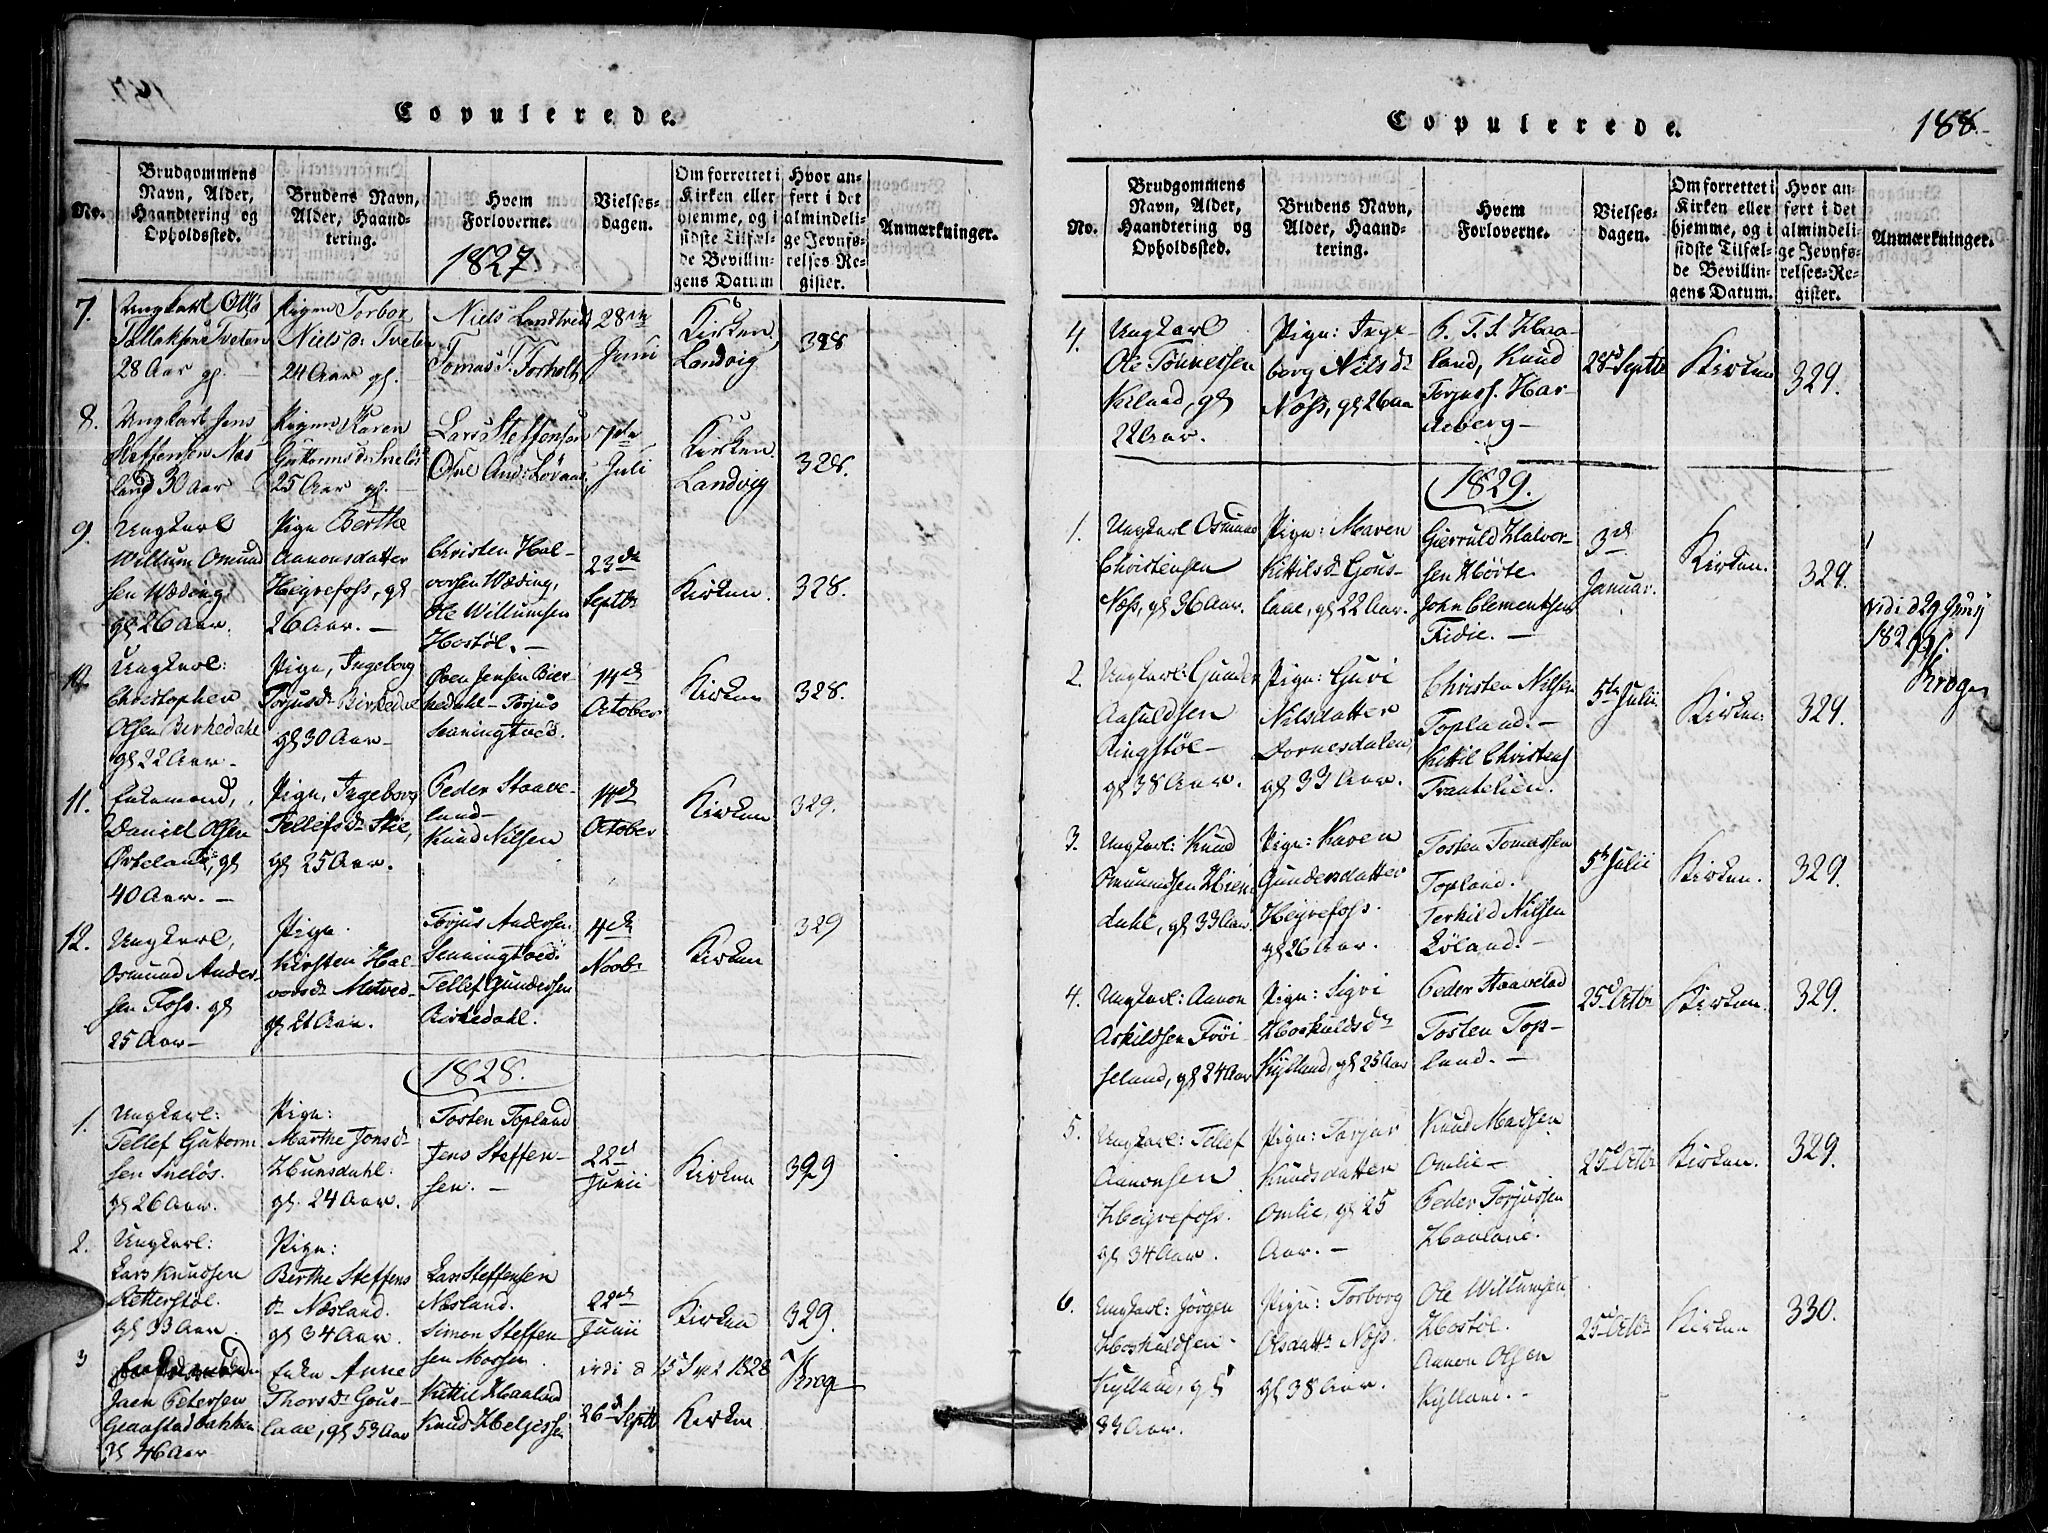 Copulerede.
No.
Brudgommens Navn, Alder, Haandtering og Opholdssted.
Brudens Navn, Alder, Haandtering.
Hvem Forloverne.
Vielsesdagen.
Om forrettet i Kirken eller hjemme, og i sidste Tilfælde Bevillingens Datum
Hvor anført i det almindelige Jevnførelses-Register.
Anmærkninger.
1827
7.
Ungkarl Olle
Tallaksen Tveten
28 Aar gl.
Pigen Torbor
Nielsd: Tveten
24 Aar gl.
Niels Landtved
Tomas T. Torholt
28de
Juni
Kirken
Landvig
328
8.
Ungkarl Jens
Steffensen Næs
land 30 Aar
Pigen Karen
Guttormsd: Sneløs
25 Aar gl.
Lars Steffensen
Ole And: Løvaas
7de
Juli
Kirken
Landvig
328.
9.
Ungkarl
Willum Omund
sen Wæding
gl 26 Aar.
Pige Berthe
Aanonsdatter
Heigrefoss, gl
26 Aar. —
Christen Hal-
vorsen Wæding,
Ole Willumsen
Hostøl. —
23de
Septbr
Kirken.
328.
10.
Ungkarl:
Christopher
Olsen Birkedahl
gl 22 Aar.
Pige, Ingeborg
Torjusdr Birkedal
gl 30 Aar —
Oben Jensen Bier-
kedahl — Torjus
Senningtved.
14de
October
Kirken
328.
11.
Enkemand,
Daniel Olsen
gl
40 Aar. —
Pige, Ingeborg
Tellefsdr Stie,
gl 25 Aar.
Peder Staave-
land —
Knud Nilsen
14de
October
Kirken
329.
12.
Ungkarl,
Osmund Ander-
sen Foss. gl
25 Aar —
Pige
Kirsten Hal-
vorsdr Metved
gl 21 Aar.
Torjus Andersen
Senningtved
Tellef Gundersen
Birkedahl.
4de
Novbr
Kirken
329
1828.
1.
Ungkarl:
Tellef Guttorm
sen Sneløs.
gl 26 Aar.
Pige:
Marthe Jonsdr
Hunsdahl:
gl. 24 Aar.
Tosten Topland
Jens Steffen-
sen. —
22de
Junii
Kirken
329
2.
Ungkarl:
Lars Knudsen
Retterstøl.
gl 33 Aar
Pige:
Berthe Steffens
dr Næsland.
gl 34 Aar.
Lars Steffensen
Næsland.
Simon Steffen-
sen Mossen
22de
Junii
Kirken
329.
3
Enkemanden
Jaen Petersen
Graastadbakken
gl 46 Aar
Enke Anne
Thorsdr Gous-
laae, gl 53 Aar
Kittil Haaland
Knud Heljessen
vidi d 15 Sept 1828 Krog
26de Septbr
Kirken
Copulerede.
188.
No.
Brudgommens Navn, Alder, Haandtering og Opholdssted.
Brudens Navn, Alder, Haandtering.
Hvem Forloverne.
Vielsesdagen.
Om forrettet i Kirken eller hjemme, og i sidste Tilfælde Bevillingens Datum.
Hvor anført i det almindelige Jevnførelses-Register.
Anmærkninger.
4.
Ungkarl
Ole Tønnessen
gl
22 Aar.
Pige: Inge-
borg Nilsdr
Næss, gl 26 Aar
Haa-
land, Knud
Torjuss. Har-
reberg —
28de Septbr
Kirken
329.
1829.
1.
Ungkarl Osmund
Christensen
Næss, gl 36 Aar.
Pige: Maren
Kittilsdr Gous-
laae, gl 22 Aar.
Gierruld Halvor-
sen Hørte
John Clementsen
Fidie. —
3de
Januar.
Kirken.
329.
Vidi d 29 Junij
1829
Krog
2.
Ungkarl: Gunder
Aasuldsen
Ringstøl —
gl 38 Aar.
Pige: Guri
Nilsdatter
Dornesdalen,
gl 33 Aar.
Christen Nilsen
Topland. —
Kittil Christens
Trantelien.
5te Julii
Kirken
329.
3.
Ungkarl: Knud
Omundsen Hien-
dahl, gl 33 Aar.
Pige: Karen
Gundersdatter
Heigrefoss.
gl 26 Aar.
Tosten Tomassen
Topland.
Terkild Nilsen
Løland. —
5te Julii
Kirken.
329.
4.
Ungkarl: Aanon
Askildsen Frøi-
seland, gl 24 Aar
Pige: Sigri
Hoskuldsdr
Kylland, gl 25 Aar
Peder Staaveland
Tosten Top-
land. —
25de Octbr
Kirken.
329.
5.
Ungkarl: Tellef
Aanonsen
Heigrefoss.
gl 34 Aar.
Pige: Torjer
Knudsdatter
Omlie, gl 25
Aar. —
Knud Madsen
Omlie —
Peder Torjussen
Haaland.
25de Octbr
Kirken.
329.
6.
Ungkarl: Jørgen
Hoskuldsen
Kylland, gl
33 Aar.
Pige: Torborg
Olsdattr Næss.
gl 38 Aar.
Ole Willumsen
Hostøl.
Aanon Olsen
Kylland. —
25de Octbr
Kirken
330.